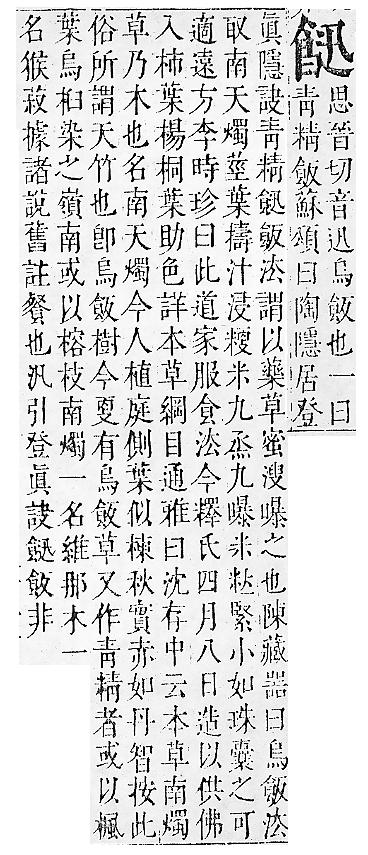 䭀
思晉切音迅烏飯也一曰
靑精飯蘇頌曰陶隱居登
眞隱訣靑精䭀飯法謂以藥草蜜溲曝之也陳藏器曰烏飯法
取南天燭莖葉擣汁浸粳米九烝九曝米粒緊小如珠囊之可
適遠方李時珍曰此道家服食法今釋氏四月八日造以供佛
入柿葉楊桐葉助色詳本草綱目通雅曰沈存中云本草南燭
草乃木也名南天燭今人植庭側葉似楝秋實赤如丹智按此
俗所謂天竹也卽烏飯樹今㪅有烏飯草又作靑精者或以楓
葉烏桕染之嶺南或以榕枝南燭一名維那木一
名猴菽據諸說舊註餐也汎引登眞訣䭀飯非